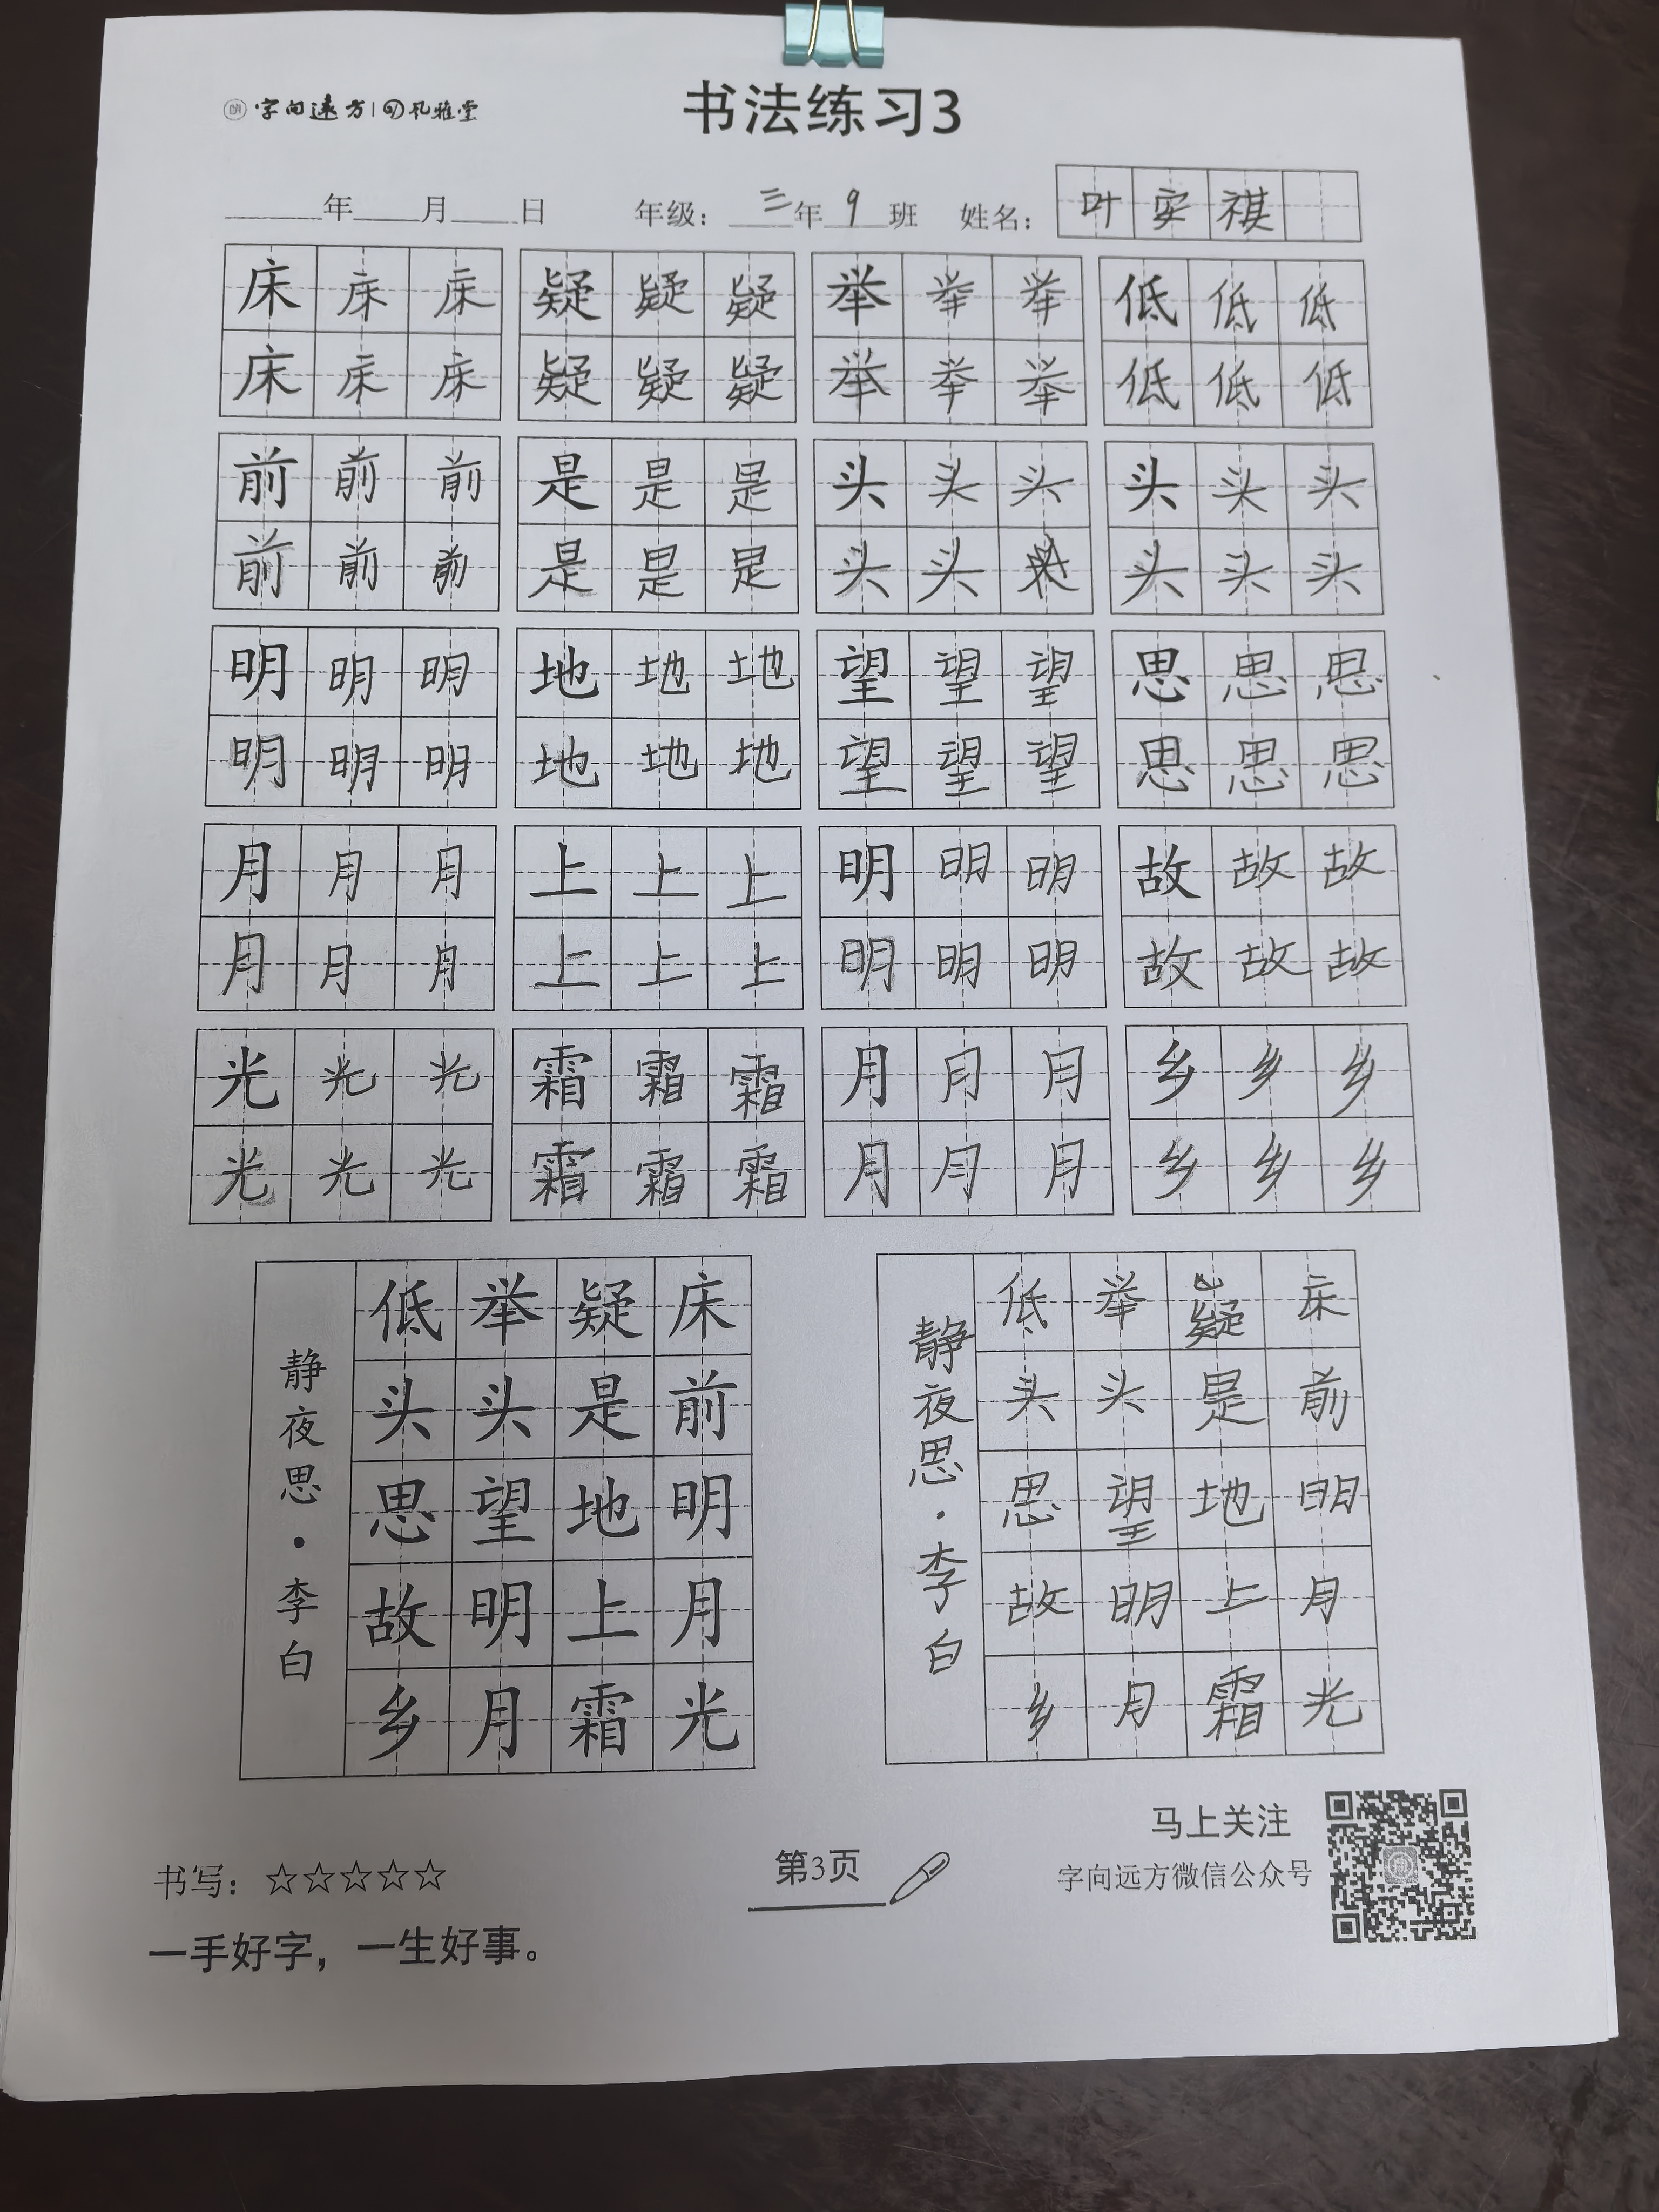 字向远方 | 孔雅堂
书法练习3
年 月 日 年级：三年9班 姓名：叶实祺
床床床 疑疑疑 举举举 低低低
床床床 疑疑疑 举举举 低低低
前前前 是是是 头头头 头头头
前前前 是是是 头头 头头头
明明明 地地地 望望望 思思思
明明明 地地地 望望望 思思思
月月月 上上上 明明明 故故故
月月月 上上上 明明明 故故故
光光光 霜霜霜 月月月 乡乡乡
光光光 霜霜霜 月月月 乡乡乡
床前明月光
疑是地上霜
举头望明月
低头思故乡
静夜思·李白
床前明月光
疑是地上霜
举头望明月
低头思故乡
静夜思·李白
书写：☆☆☆☆☆
一手好字，一生好事。
第3页
马上关注
字向远方微信公众号